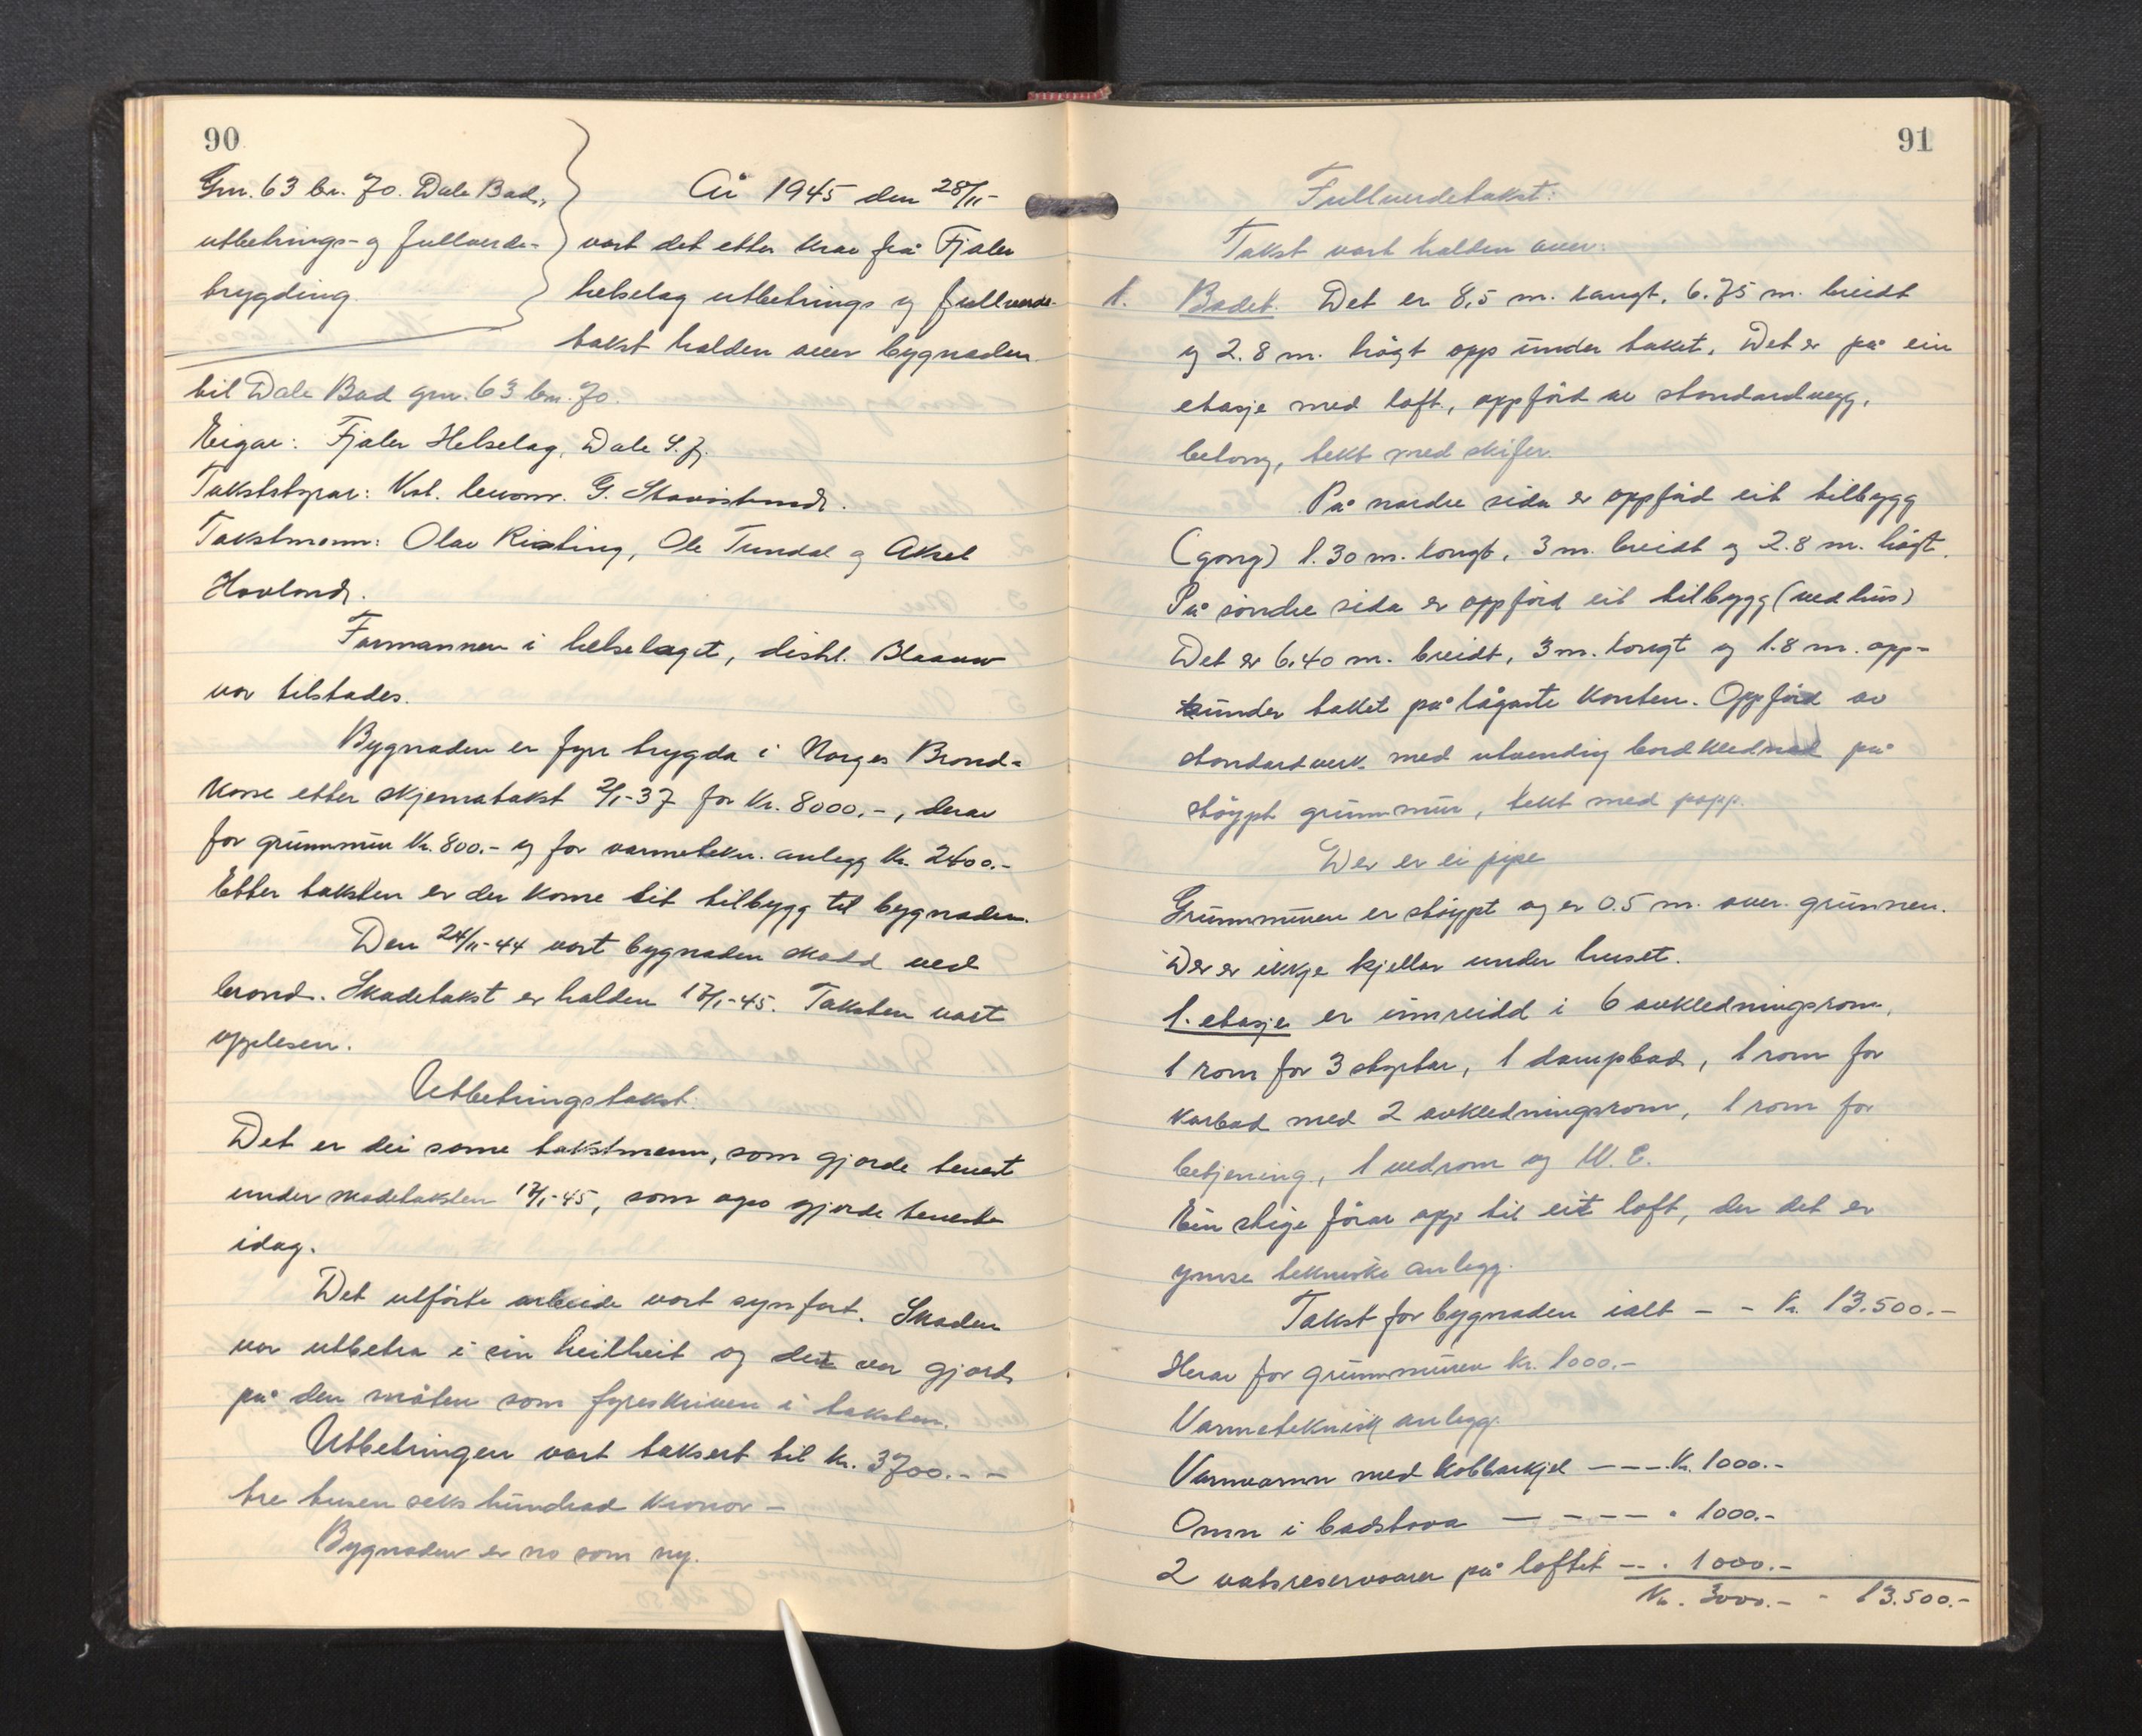 90
Gnr. 63 br. 70. Dale Bad,
utbetrings- og fullverde-
trygding.
År 1945 den 28/11-
vart det etter krav frå Fjaler
helselag utbetrings og fullverde-
takst halden over bygnaden
til Dale Bad gnr. 63 bnr. 70.
Eigar: Fjaler Helselag, Dale S.fj.
Takststyrar: Kst. lensm. G.
Takstmenn: Olav Risting, Ole Tundal og Aksel
Hovland.
Formannen i helselaget, distl. Blaauw
var tilstades.
Bygnaden er fyrr trygda i Norges Brand-
kasse etter skjematakst 2/1-37 for kr. 8000.-, derav
for grunnmur kr. 800.- og for varmetekn. anlegg kr. 2400.-
Etter taksten er der kome eit tilbygg til bygnaden.
Den 24/11-44 vart bygnaden skadd ved
brand. Skadetakst er halden 17/1-45. Taksten vart
opplesen.
Utbetringstakst.
Det er dei same takstmenn, som gjorde tenest
under skadetaksten 17/1-45, som ogso gjorde teneste
idag.
Det utførte arbeide vart synfart. Skaden
var utbetra i sin heilheit og det var gjort
på den måten som fyreskriven i taksten.
Utbetringen vart taksert til kr. 3700.- -
tre tusen seks hundrad kronor -
Bygnaden er no som ny.
91
Fullverdetakst:
Takst vart halden over:
1. Badet. Det er 8,5 m. langt, 6.75 m. breidt
og 2.8 m. høgt opp under taket. Det er på ein
etasje med loft, oppførd av standardvegg,
betong, tekt med skifer.
På nordre sida er oppførd eit tilbygg
(gong) 1.30 m. langt, 3 m. breidt og 2.8 m. høgt.
På søndre sida er oppførd eit tilbygg (vedhus)
Det er 6.40 m. breidt, 3 m. langt og 1.8 m. opp-
under taket på lågaste kanten. Oppførd av
standardverk med utvendig bordklednad på
støypt grunnmur, tekt med papp.
Der er ei pipe
Grunnmuren er støypt og er 0.5 m. over grunnen.
Der er ikkje kjellar under huset.
1. etasje er innreidd i 6 avkledningsrom,
1 rom for 3 styrtar, 1 dampbad, 1 rom for
karbad med 2 avkledningsrom, 1 rom for
betjening, 1 vedrom og W.C.
Ein stige førar opp til eit loft, der det er
ymse tekniske anlegg.
Takst for bygnaden ialt - - kr. 13.500.-
Herav for grunnmuren kr. 1000.-
Varmeteknisk anlegg.
Varmvomn med kobbarkjel - - - kr. 1000.-
Omn i badstova - - - - " 1000.-
2 vatsreservoarer på loftet - - " 1000.-
Kr. 3000.- - 13.500.-